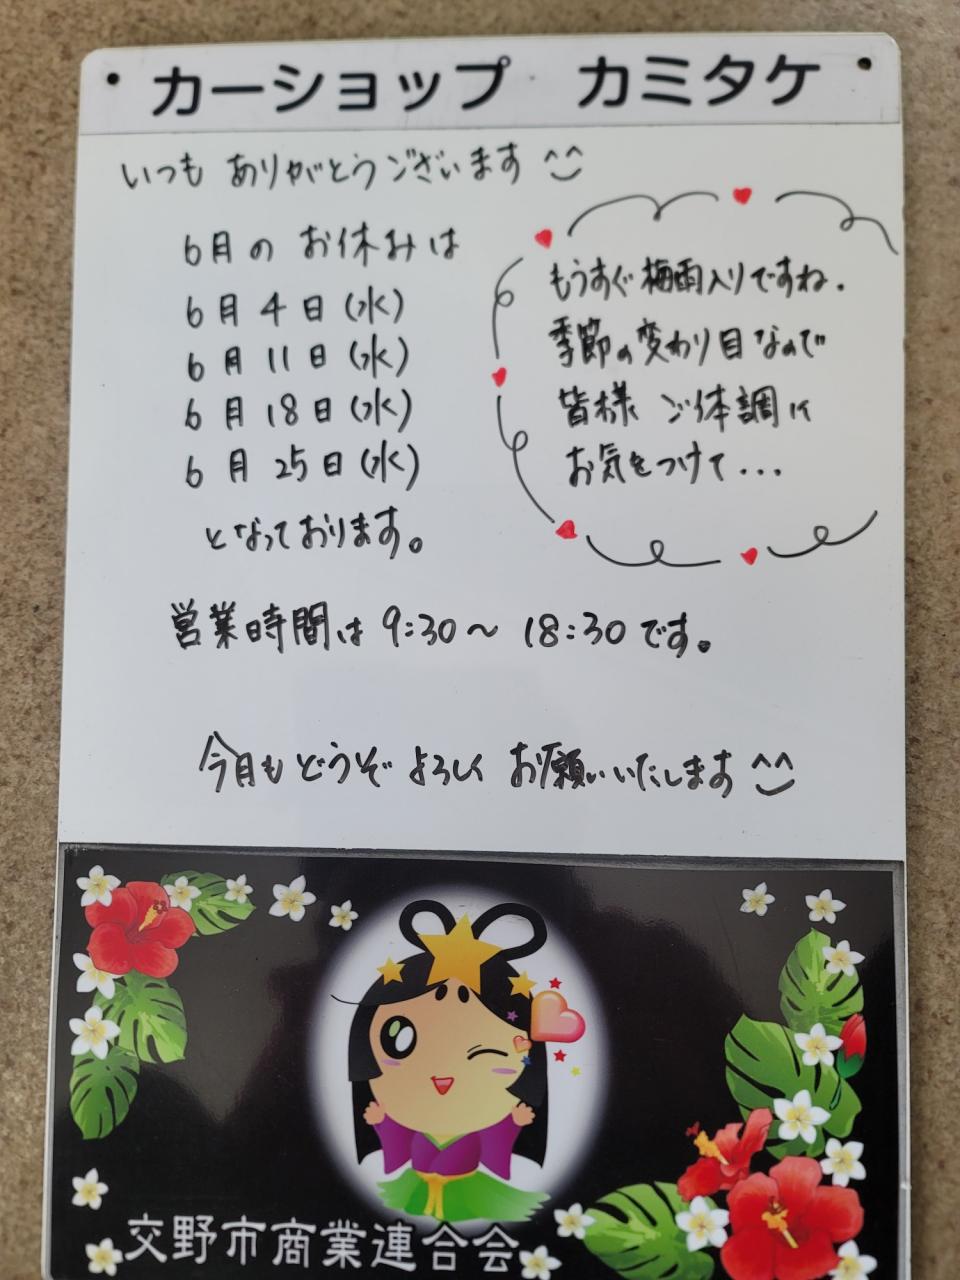 カーショップ カミタケ
いつも ありがとうございます ^^
6月の お休みは
6月 4日(水)
6月 11日(水)
6月 18日(水)
6月 25日(水)
となっております。
もうすぐ梅雨入りですね.
季節の変わり目なので
皆様 ご体調に
お気をつけて...
営業時間は 9:30～18:30です。
今月も どうぞ よろしく お願いいたします ^^
交野市商業連合会